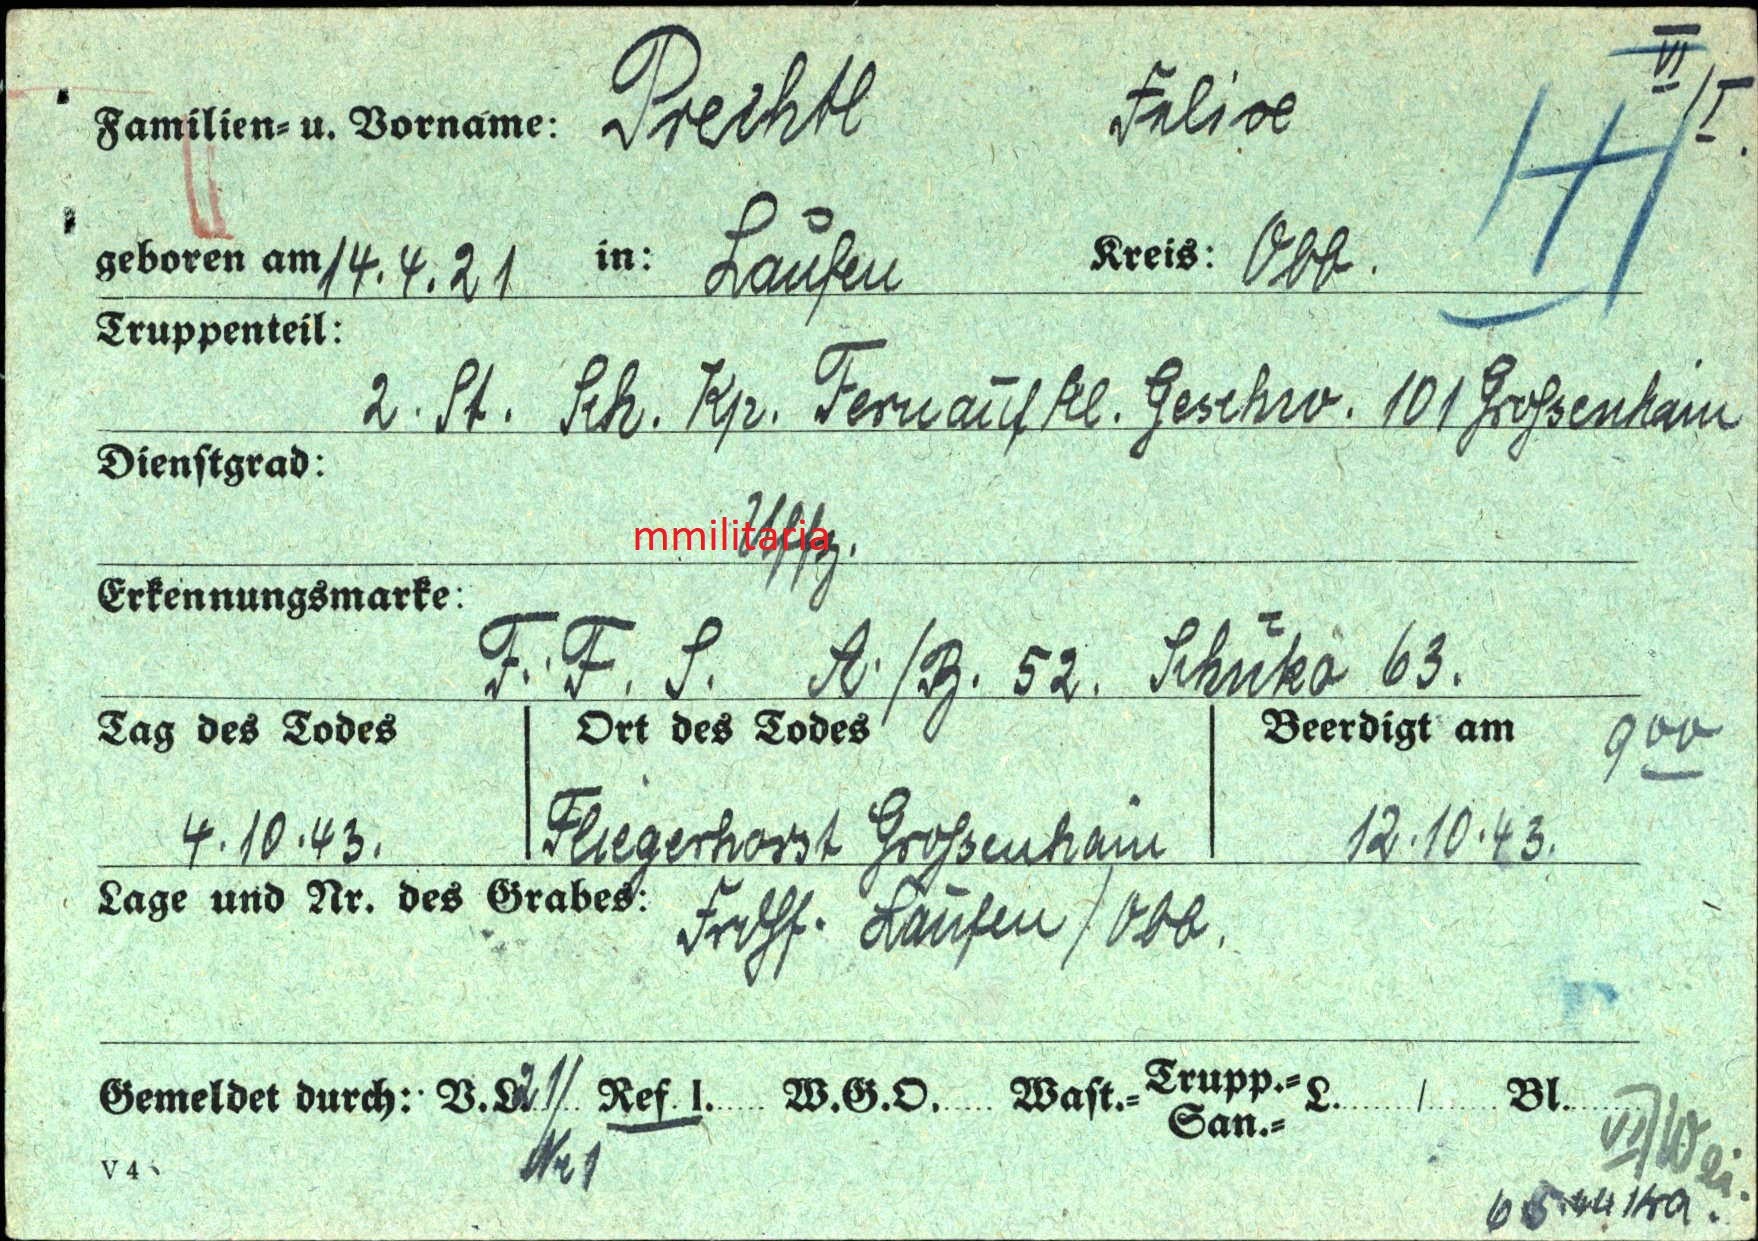 VI / I.
Familien= u. Vorname: Prechtl Felix
geboren am 14.4.21 in: Laufen Kreis: Obb.
Truppenteil:
2. St. Sch. Kp. Fernaufkl. Geschw. 101 Großenhain
Dienstgrad:
Uffz.
mmilitaria
Erkennungsmarke:
F. F. S. A./B. 52. Schüko 63.
Tag des Todes Ort des Todes Beerdigt am 9 00
4.10.43. Fliegerhorst Großenhain 12.10.43.
Lage und Nr. des Grabes: Frdhf. Laufen / Obb.
Gemeldet durch: V.L. 21/ Ref. I. W.G.O. Wast.= Trupp.= San.= L. / Bl.
V 4 Nr 1
VI/Wei.